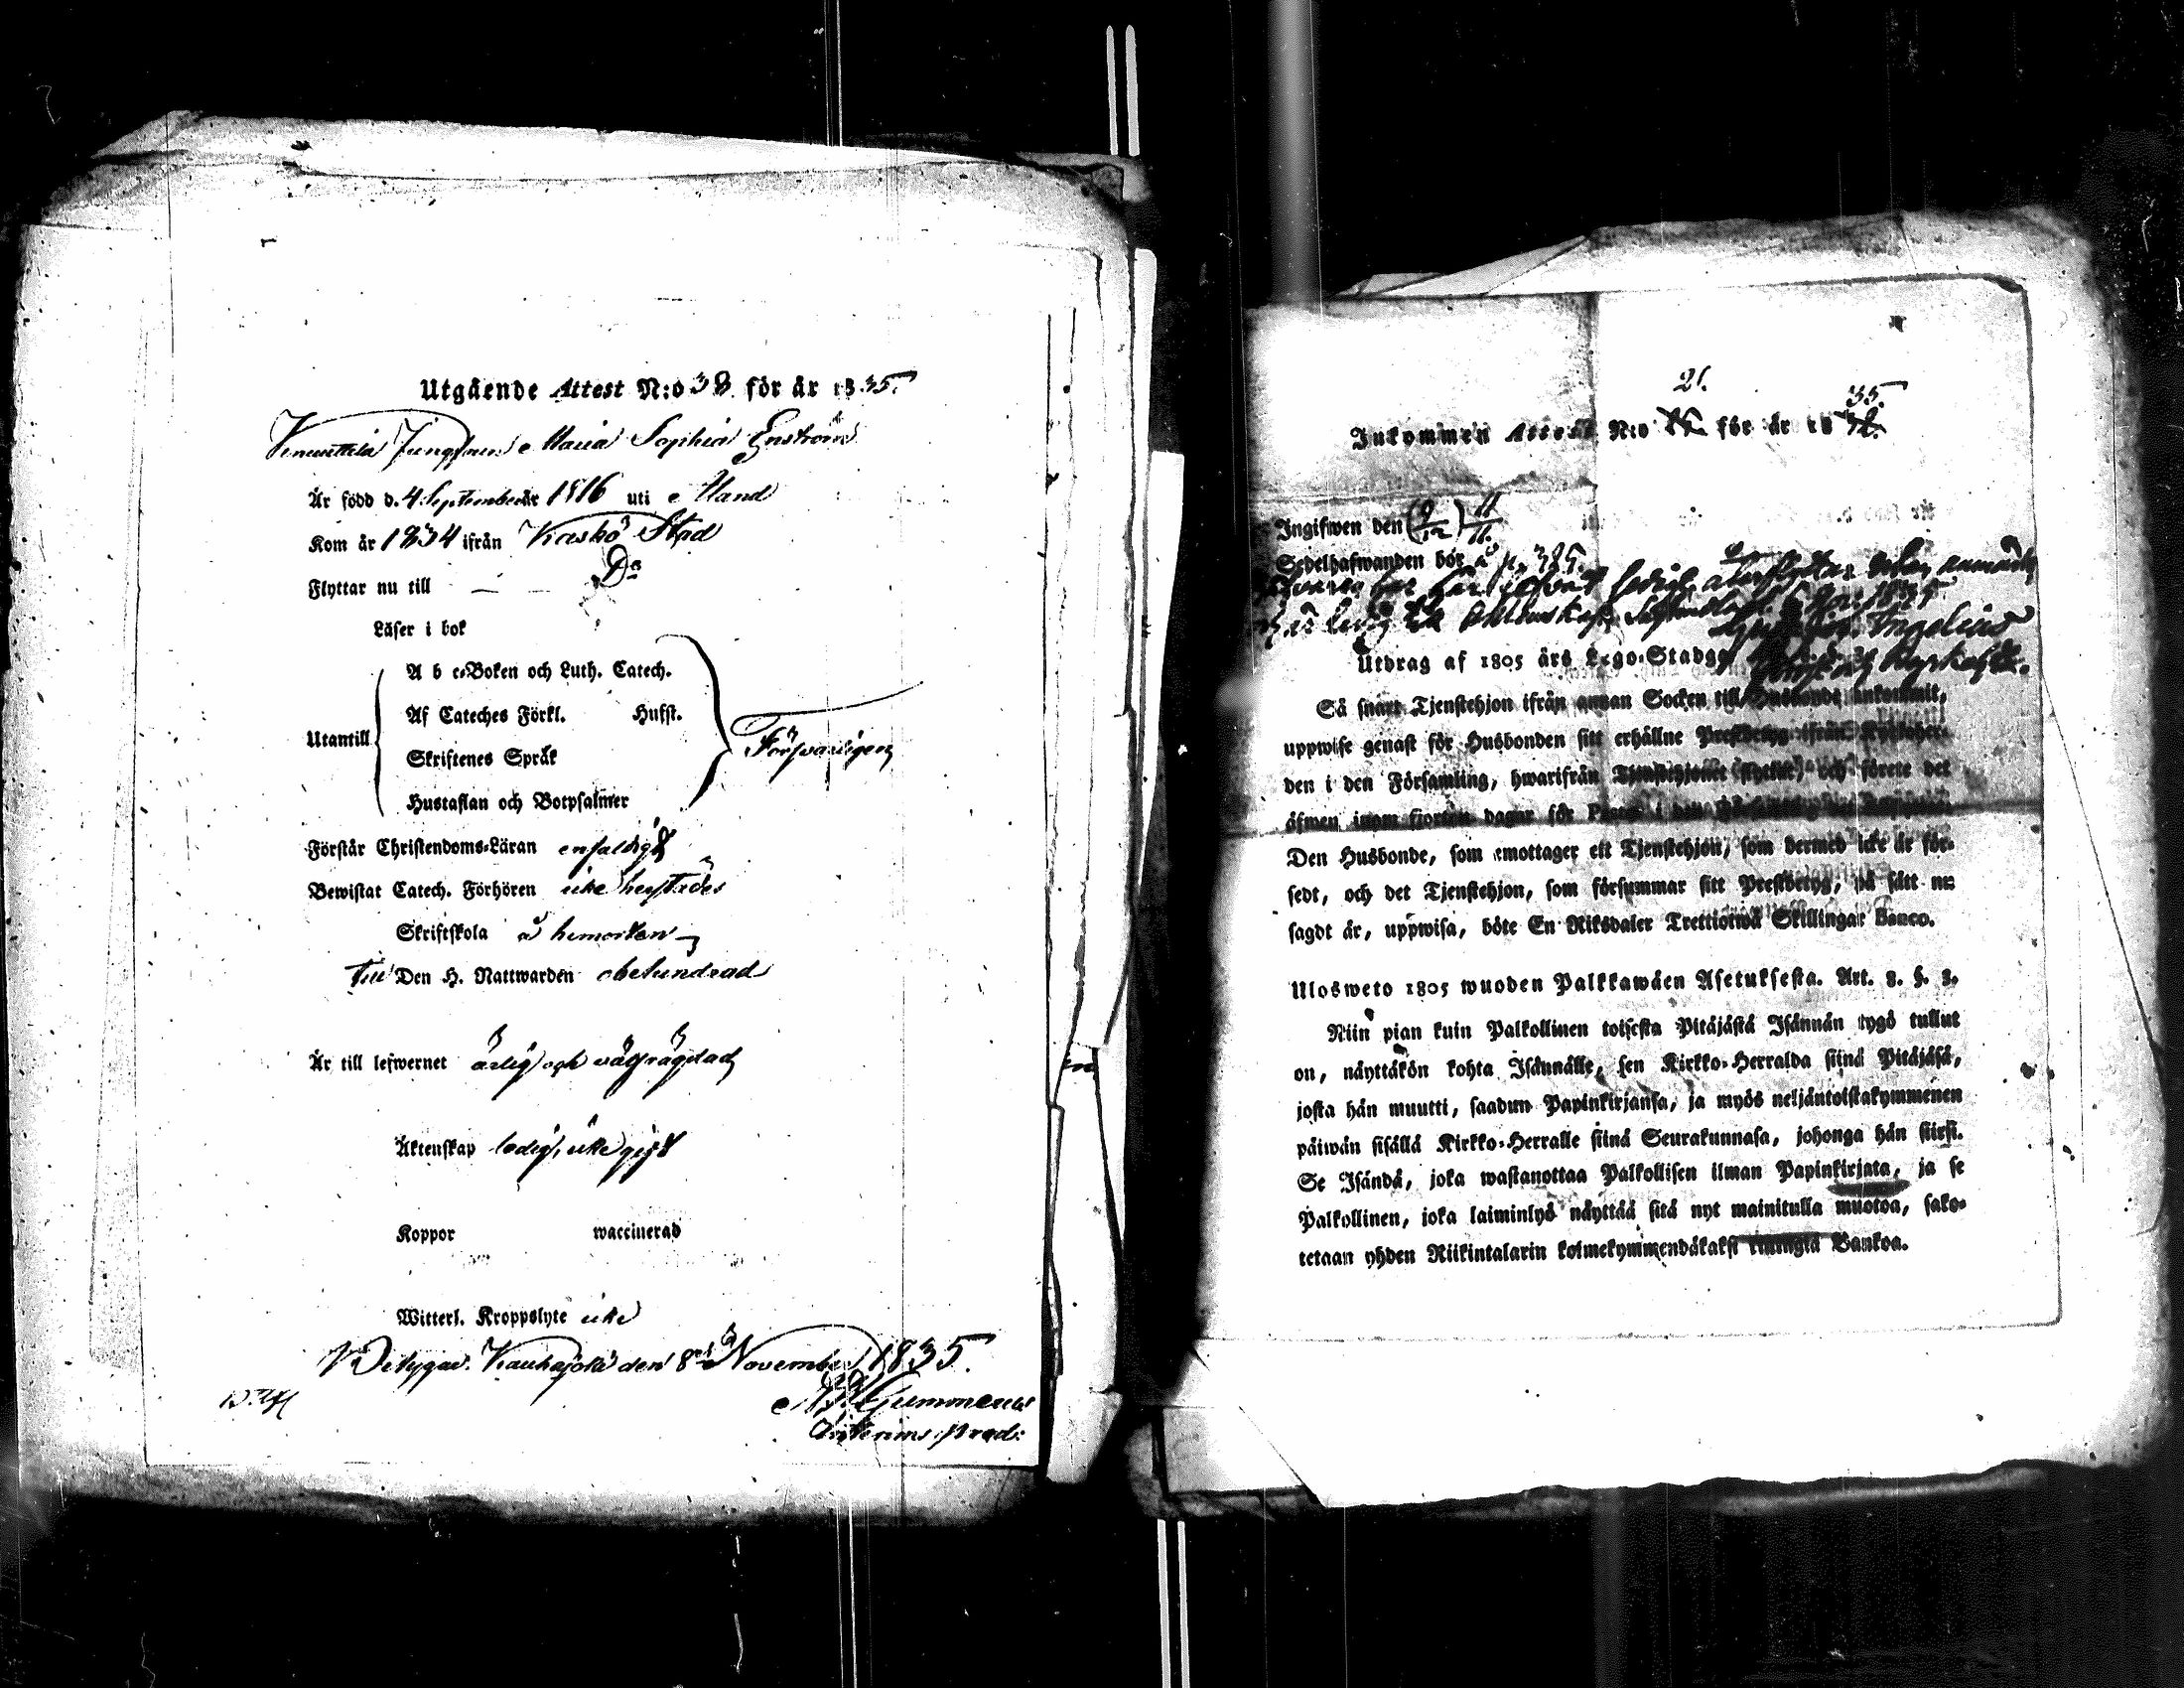 Utgående Attest N:o 38 för år 1835.
Jungfrun Maria Sophia Enström
Är född d. 4 September år 1816 uti Åland
Kom år 1834 ifrån Kaskö Stad
Flyttar nu till — — Do
Läser i bok
A b c-Boken och Luth. Catech.
Af Cateches Förkl. Husst.
Utantill Försvarligen
Skriftenes Språk
Hustaflan och Botpsalmer
Förstår Christendoms-Läran enfaldigt
Bewistat Catech. Förhören icke härstädes
Skriftskola å hemorten
Till Den H. Nattwarden obehindrad
Är till lefwernet ärlig och välfrägdad
Äktenskap ledig, icke gift
Koppor waccinerad
Witterl. Kroppslyte icke
Betygar. Kauhajoki den 8de November 1835.
Gummerus
Interims pred:
21.
35.
Inkommen Attest N:o för år 18
Ingifwen den
Sedelhafwanden bör å p. 385.
Utdrag af 1805 års Lego-Stadga
Så snart Tjenstehjon ifrån annan Socken till Husbonde ankommit,
uppwise genast för Husbonden sitt erhållne Prestbetyg ifrån Kyrkoher-
den i den Församling, hwarifrån Tjenstehjonet flyttat, och förete det
äfwen inom fjorton dagar för
Den Husbonde, som emottager ett Tjenstehjon, som dermed icke är för-
sedt, och det Tjenstehjon, som försummar sitt Prestbetyg, på sätt nu
sagdt är, uppwisa, böte En Riksdaler Trettiotwå Skillingar Banco.
Ulosweto 1805 wuoden Palkkawäen Asetuksesta. Art. 3. §. 3.
Niin pian kuin Palkollinen toisesta Pitäjästä Isännän tygö tullut
on, näyttäkön kohta Isännälle, sen Kirkko-Herralda siinä Pitäjäsä,
josta hän muutti, saadun Papinkirjansa, ja myös neljäntoistakymmenen
päiwän sisällä Kirkko-Herralle siinä Seurakunnasa, johonga hän siirsi.
Se Isändä, joka wastanottaa Palkollisen ilman Papinkirjata, ja se
Palkollinen, joka laiminlyö näyttää sitä nyt mainitulla muotoa, sako-
tetaan yhden Riikintalarin kolmekymmendäkaksi Bankoa.